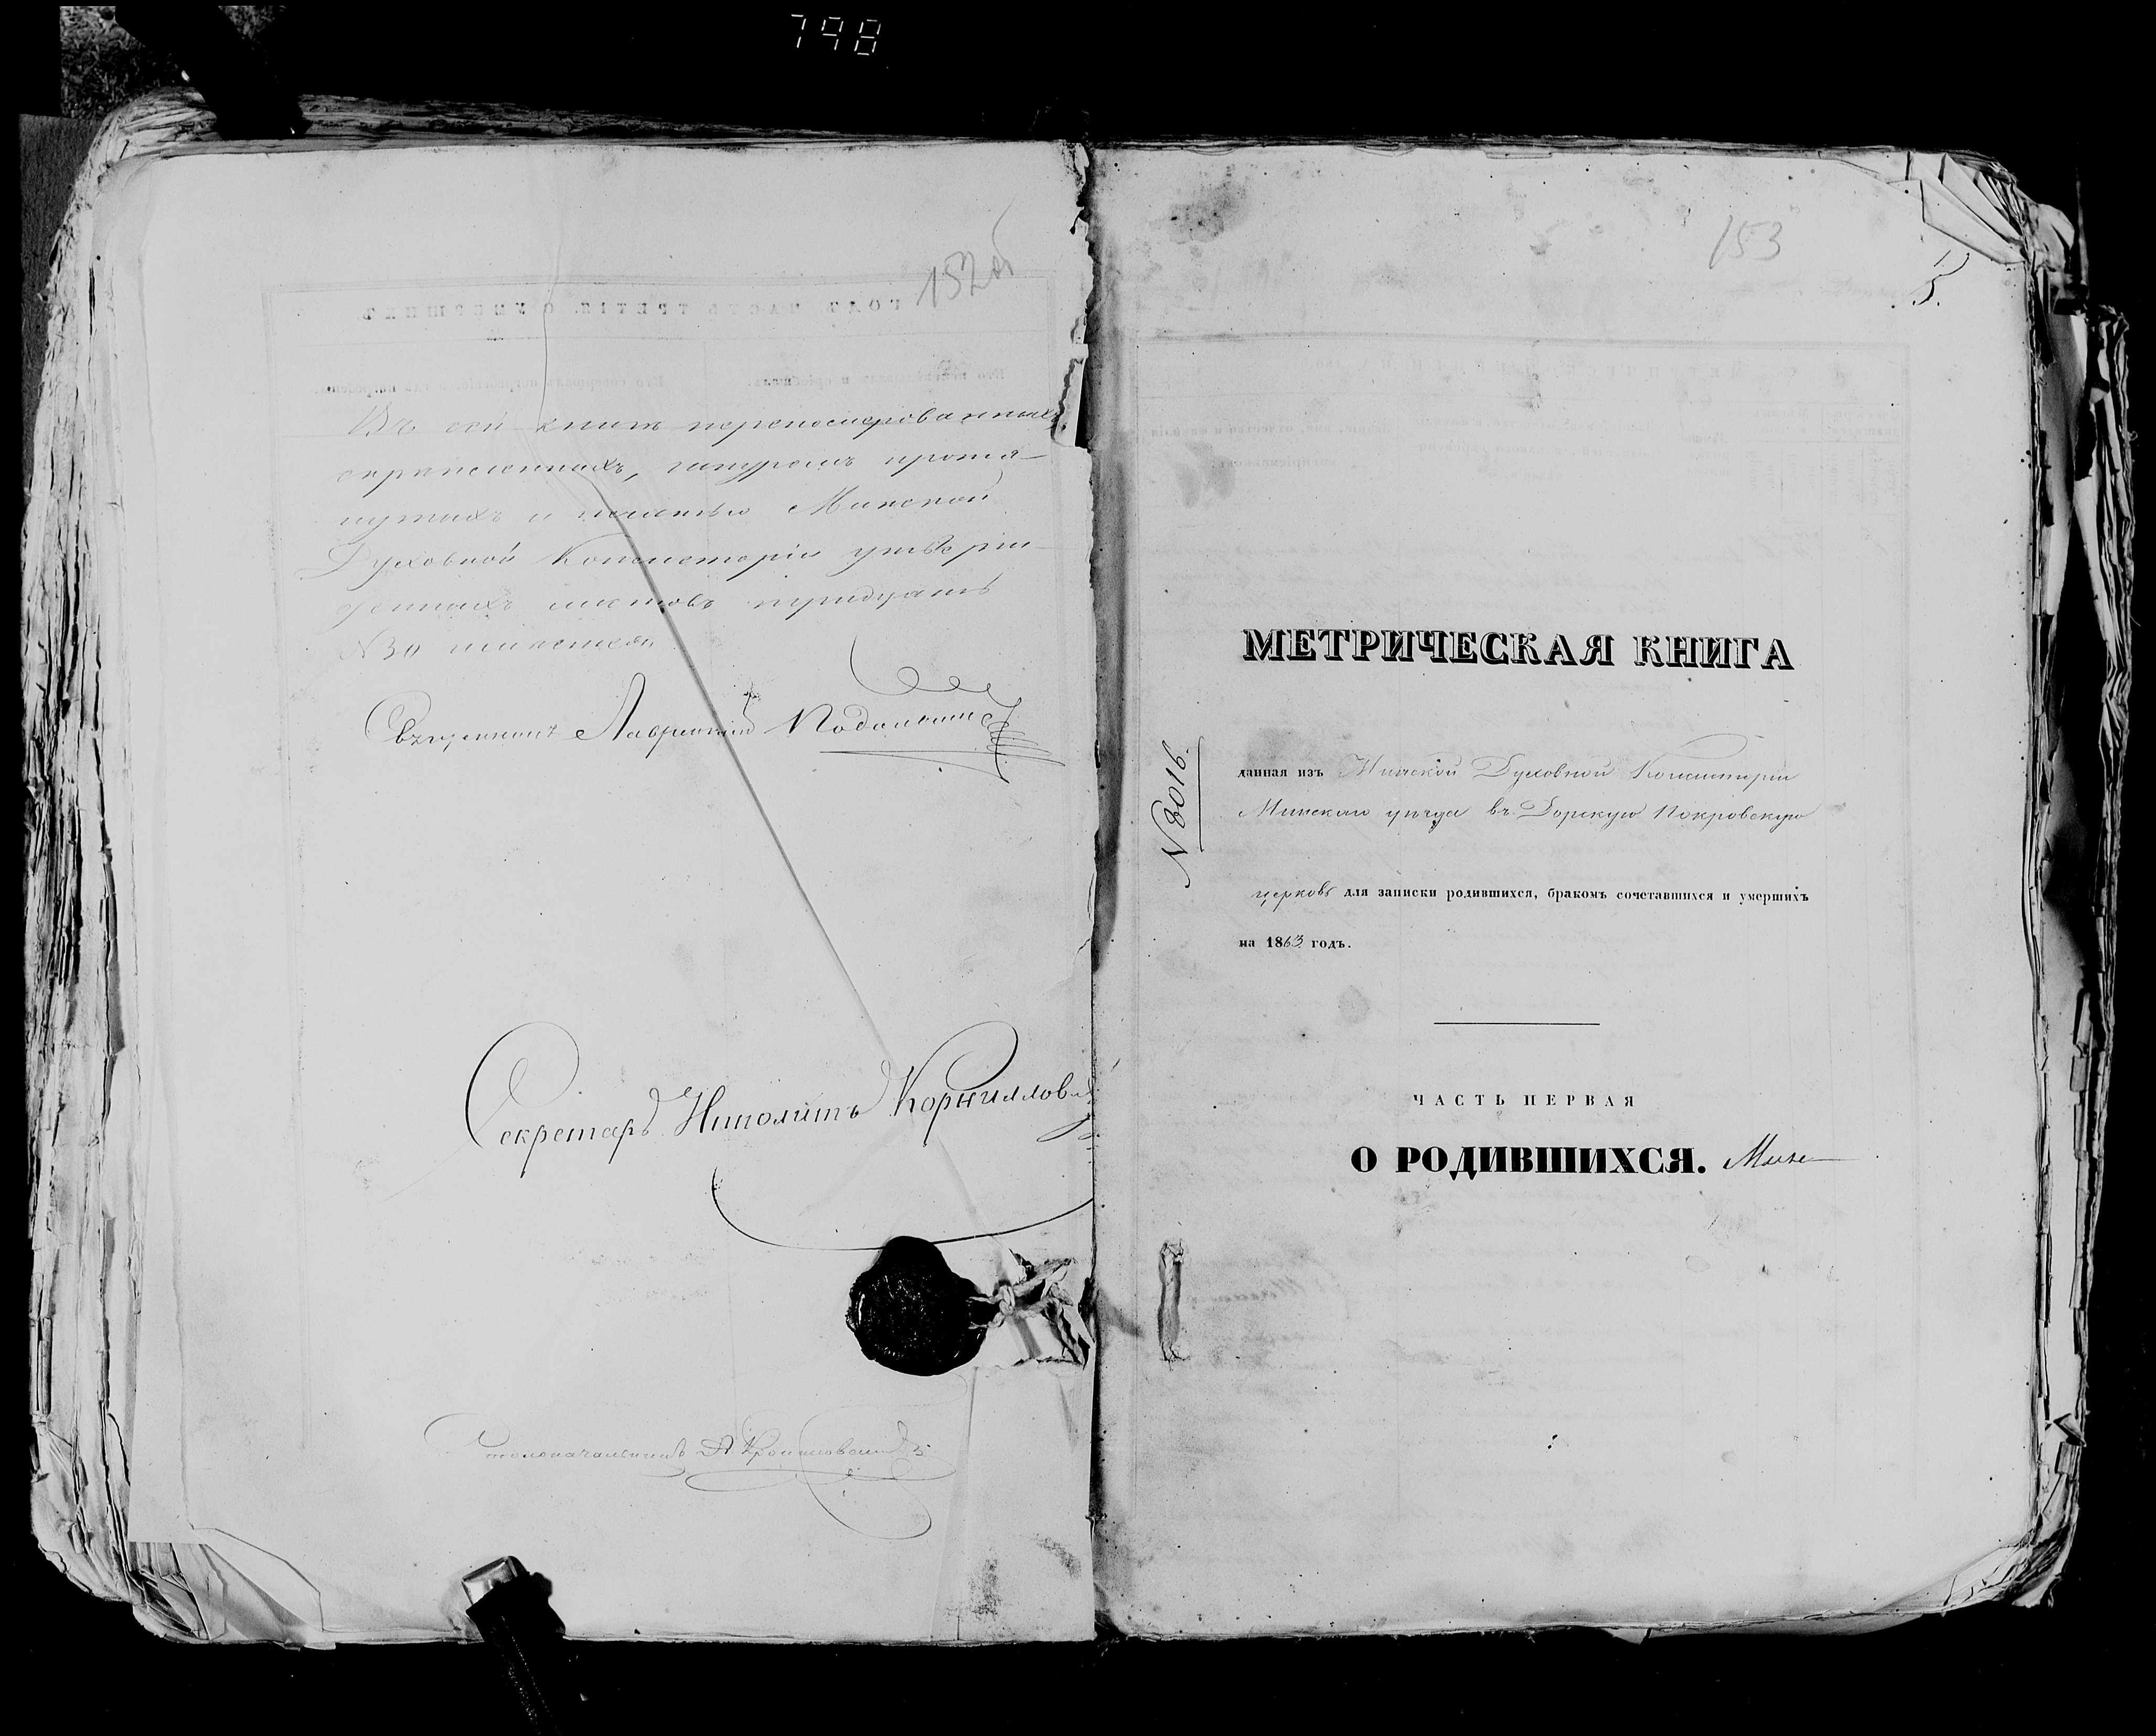 798
152об
Въ сей книгѣ перенумерованныхъ
скрѣпленныхъ, шнуромъ протя-
нутыхъ и печатью Минской
Духовной Консисторіи утверж-
денныхъ листовъ тридцать
№30
Священникъ Лаврентій
Секретарь Иполитъ Корнилов
Столоначальникъ
153
МЕТРИЧЕСКАЯ КНИГА
№ 6016.
данная изъ Минской Духовной Консисторіи
Минскаго уѣзда въ Дорскую Покровскую
церковь для записки родившихся, бракомъ сочетавшихся и умершихъ
на 1863 годъ.
ЧАСТЬ ПЕРВАЯ
О РОДИВШИХСЯ.